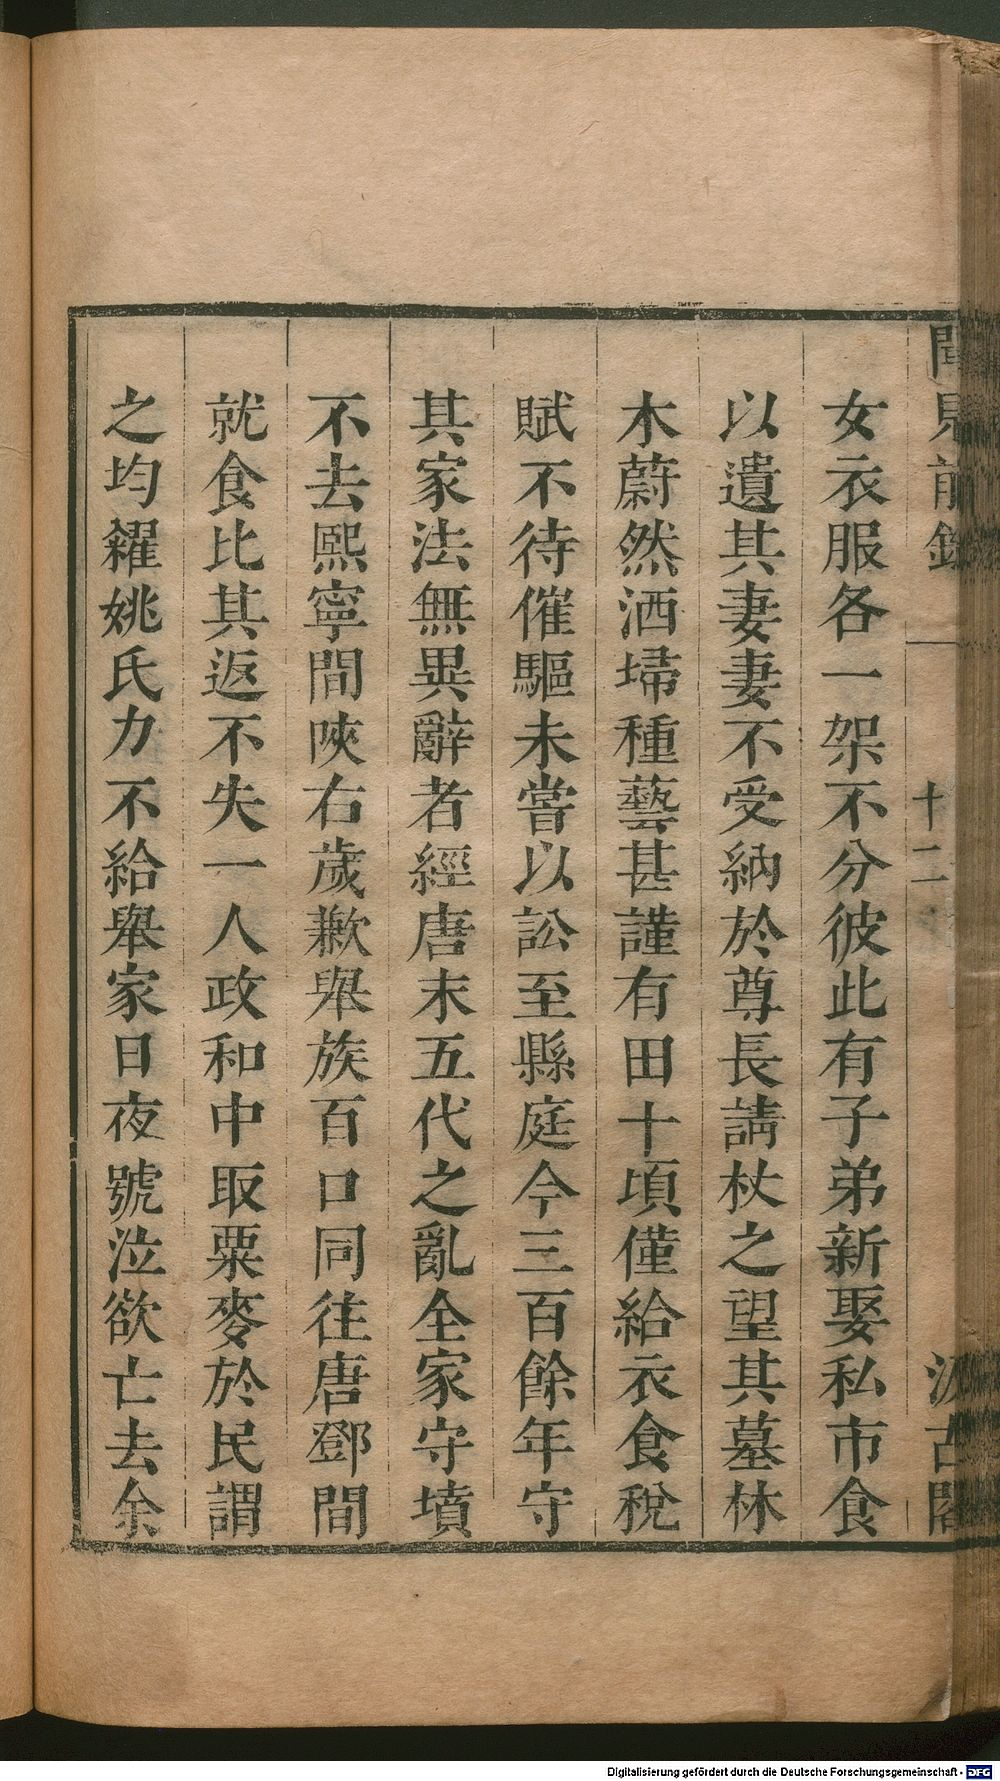 聞見前錄 十二 汲古閣
女衣服各一架不分彼此有子弟新娶私市食
以遺其妻妻不受納於尊長請杖之望其墓林
木蔚然洒埽種藝甚謹有田十頃僅給衣食稅
賦不待催驅未嘗以訟至縣庭今三百餘年守
其家法無異辭者經唐末五代之亂全家守墳
不去熙寧間陝右歲歉舉族百口同往唐鄧間
就食比其返不失一人政和中取粟麥於民謂
之均糴姚氏力不給舉家日夜號泣欲亡去余
Digitalisierung gefördert durch die Deutsche Forschungsgemeinschaft - DFG